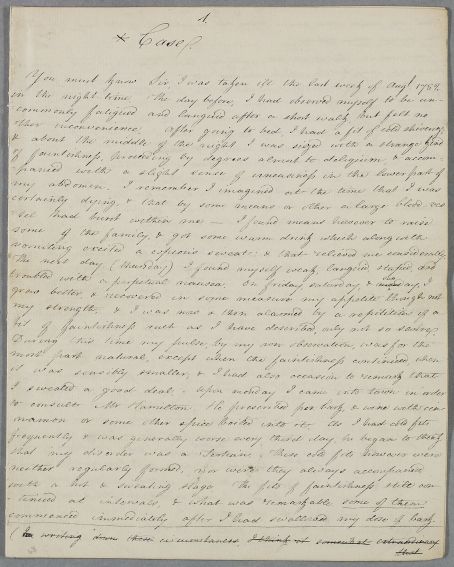 1.
* Case.
You must know Sir, I was taken ill the last week of Augt 1769.
in the night time. The day before, I had observed myself to be un-
commonly fatigued and languid after a short walk, but felt no
other inconvenience. After going to bed, I had a fit of cold shivering,
& about the middle of the night I was seized with a strange kind
of faintishness, proceeding by degrees almost to deliquium, & accom-
panied with a slight sense of uneasiness in the lower part of
my abdomen. I remember I imagined at the time that I was
certainly dying, & that by some means or other a large blood ves-
sel had burst within me — I found means however to raise
some of the family, & got some warm drink which along with
vomiting excited a copious sweat: & that relieved me considerably.
The next day (thursday) I found myself weak, languid stupid, and
troubled with a perpetual nausea. On friday, saturday, & sunday, I
grew better & recovered in some measure my appetite though not
my strength, & I was now & then alarmed by a repetition of a
fit of faintishness such as I have described, only not so strong.
During this time my pulse, by my own observation, was for the
most part natural, except when the faintishness continued when
it was sensibly smaller, & I had also occasion to remark that
I sweated a good deal. Upon monday I came into town in order
to consult Mr Hamilton. He prescribed per bark & wine with cin-
namon or some other spice boiled with it. As I had cold fits
frequently & was generally worse every third day he began to think
that my disorder was a Tertian. These cold fits however were
neither regularly formed, nor were they always accompanied
with a hot & sweating stage. The fits of faintishness still con-
tinued at intervals & what was remarkable some of them
commenced immediately after I had swallowed my dose of bark.
(In writing down these circumstances I think it somewhat extraordinary
that